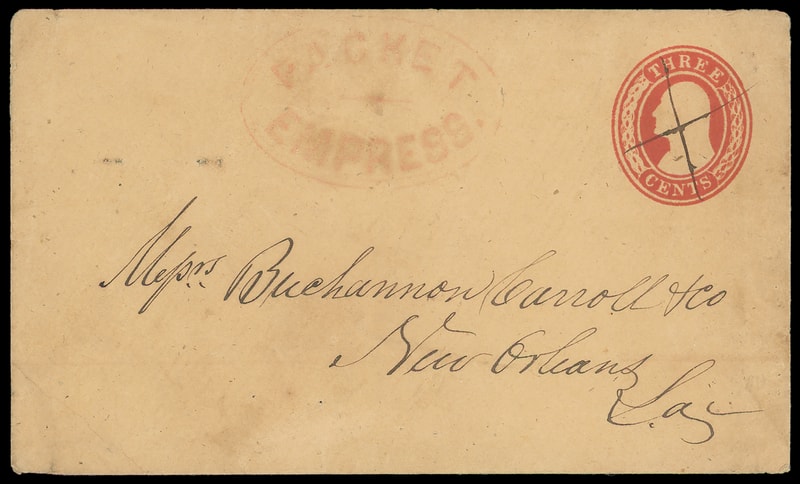 PACKET
EMPRESS.
THREE
CENTS
Messrs. Buchannon Carroll & co
New Orleans
La